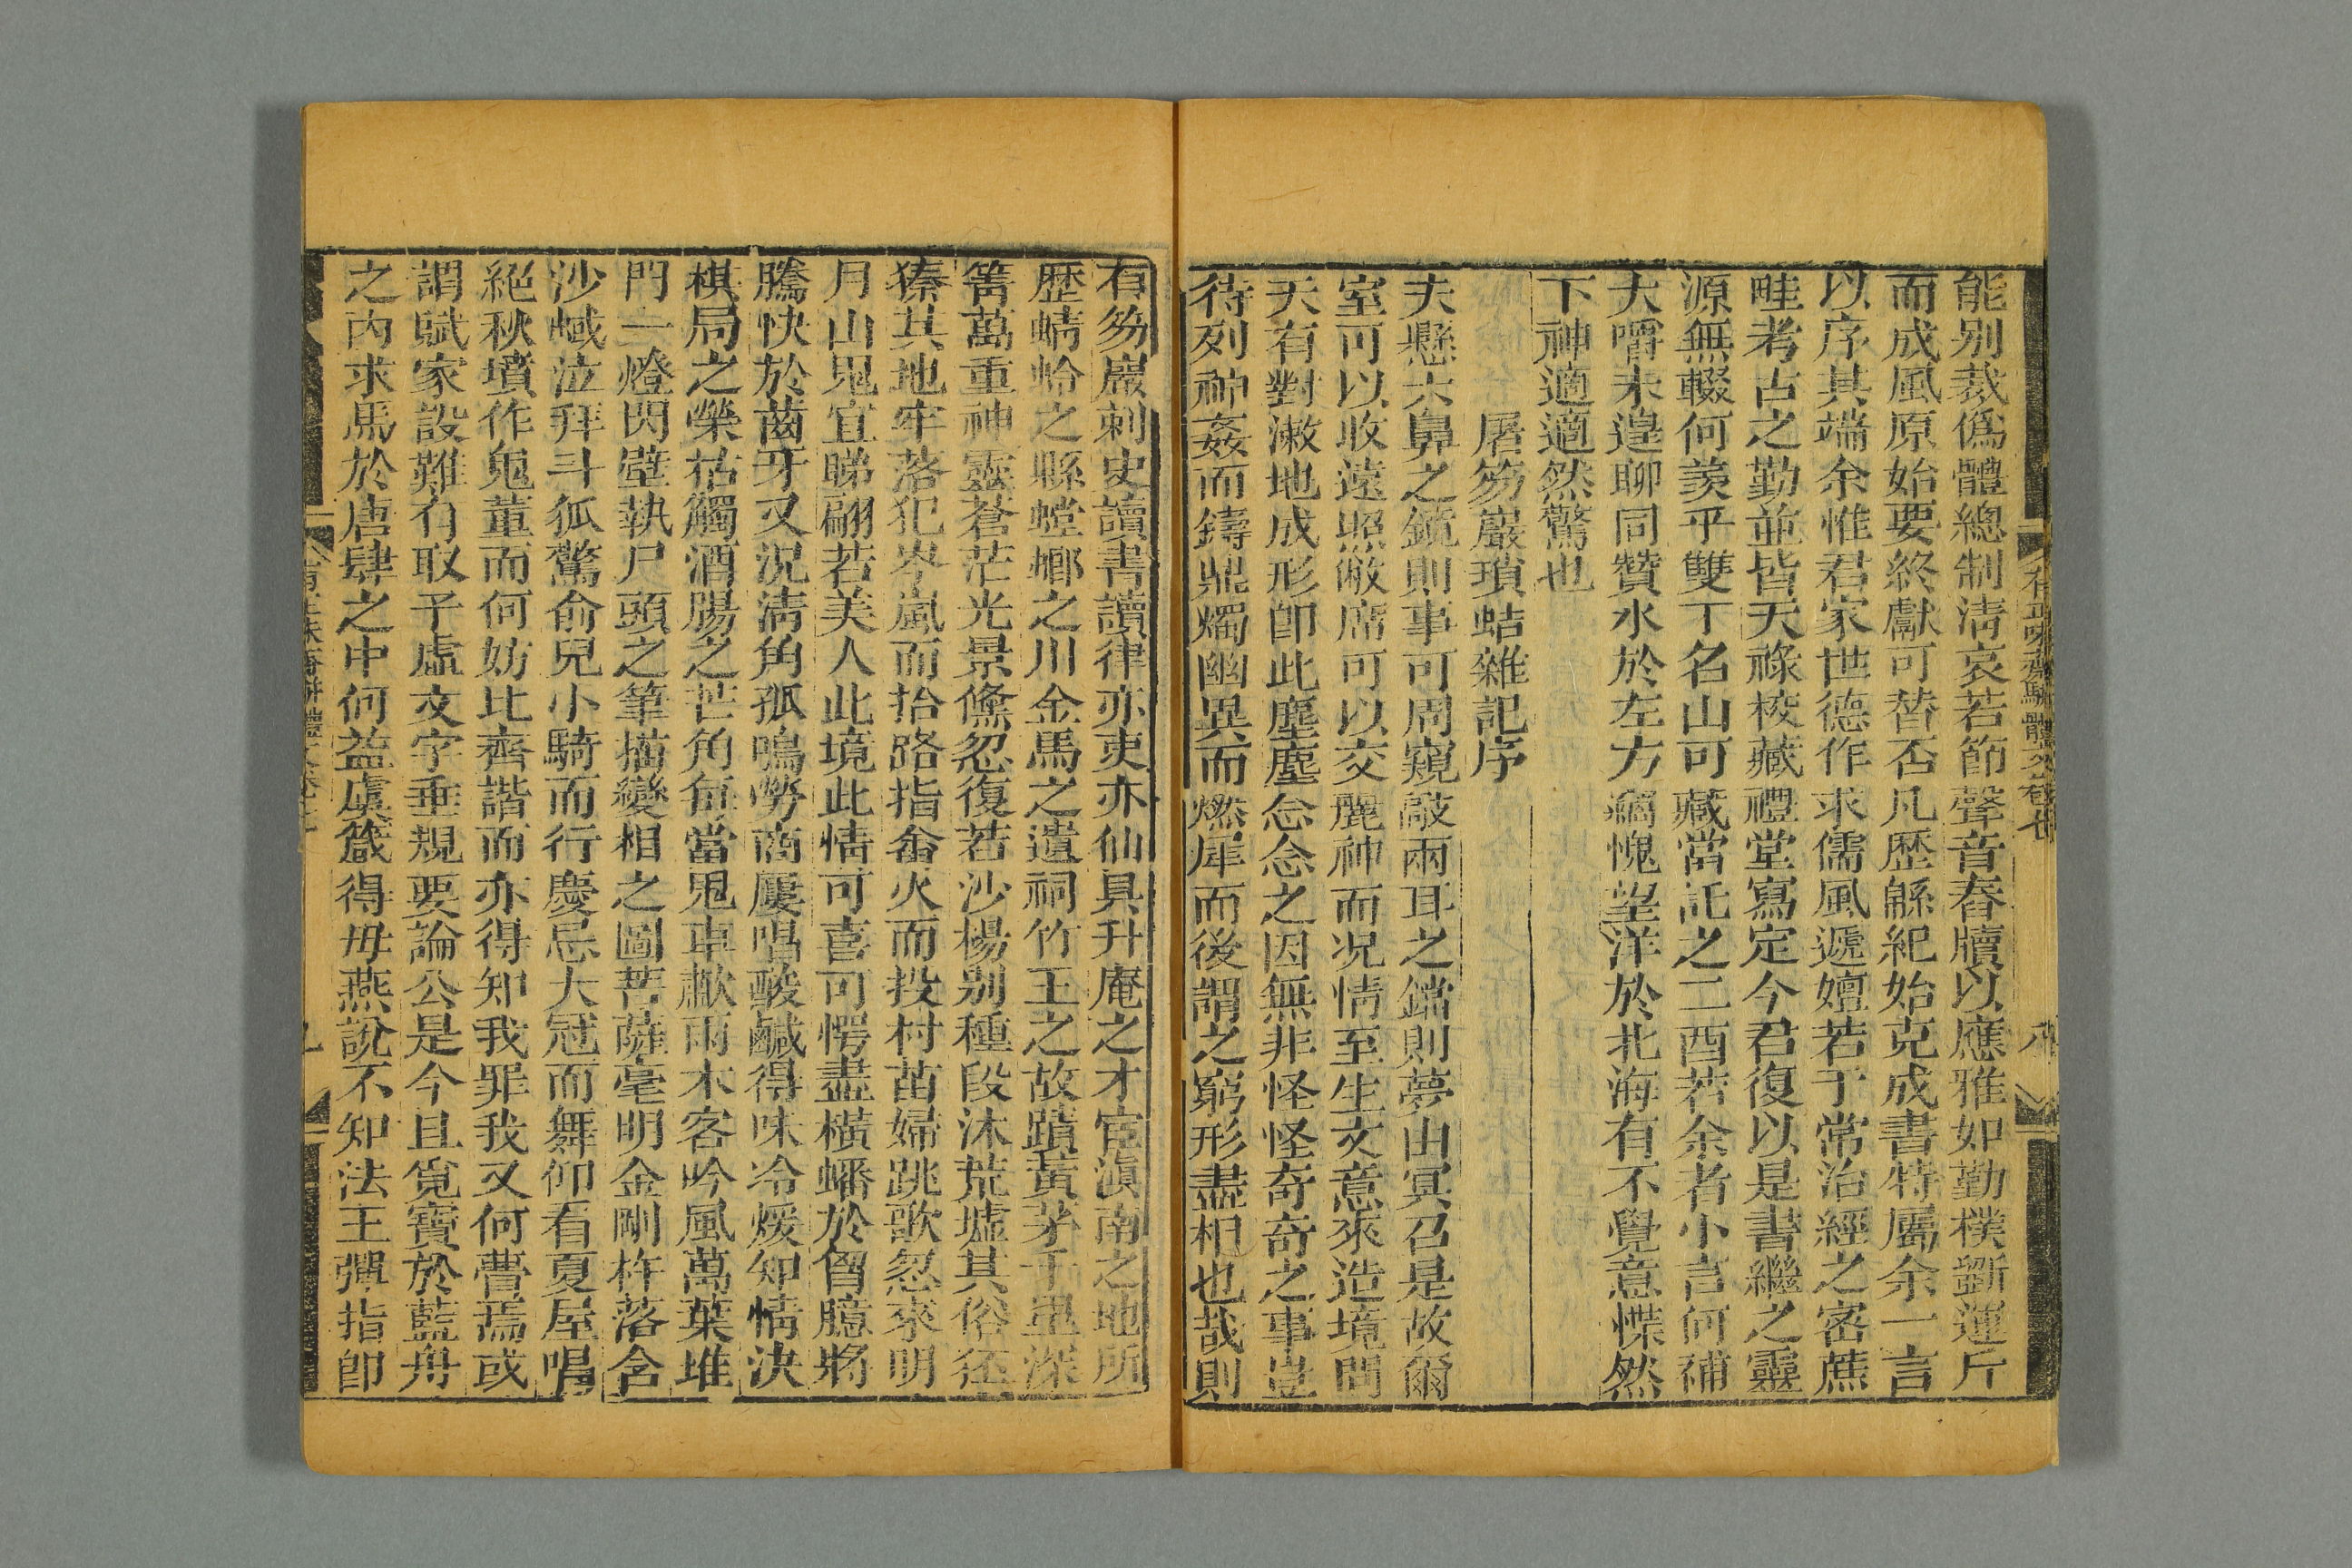 有正味齋駢體文卷七
八
能别裁僞體總制淸哀若節聲音舂牘以應雅如勤樸斲運斤
而成風原始要終獻可替否凡歷緜紀始克成書特屬余一言
以序其端余惟君家世德作求儒風遞嬗若于常治經之密蕉
畦考古之勤並皆天祿校藏禮堂寫定今君復以是書繼之靈
源無輟何羨乎雙丁名山可藏當託之二酉若余者小言何補
大嚼未遑聊同贊水於左方竊愧望洋於北海有不覺意慄然
下神適適然驚也
屠笏巖瑣蛣雜記序
夫懸六鼻之鏡則事可周窺敲兩耳之鐺則夢由冥召是故爾
室可以收遠照敝席可以交麗神而况情至生文意來造境問
天有對潄地成形卽此塵塵念念之因無非怪怪奇奇之事豈
待列神姦而鑄鼎燭幽異而燃犀而後謂之窮形盡相也哉則
有笏巖刺史讀書讀律亦吏亦仙具升庵之才宦滇南之地所
歷蜻蛉之縣螳螂之川金馬之遺祠竹王之故蹟黃茅千里深
箐萬重神靈蒼茫光景儵忽復若沙楊别種段沐荒墟其俗狉
獉其地牢落犯岑嵐而抬路指畬火而投村苗婦跳歌忽來明
月山鬼宜睇翩若美人此境此情可喜可愕盡橫蟠於胷臆將
騰快於齒牙又況淸角孤鳴勞商屢唱酸鹹得味冷煖知情決
棋局之榮枯觸酒腸之芒角每當鬼車歗雨木客吟風萬葉堆
門一燈閃壁執尸頭之筆描變相之圖菩薩毫明金剛杵落含
沙蜮泣拜斗狐驚俞兒小騎而行慶忌大冠而舞仰看夏屋唱
絕秋墳作鬼董而何妨比齊諧而亦得知我罪我又何瞢焉或
謂賦家設難有取子虛文字垂規要論公是今且覓寶於藍舟
之內求馬於唐肆之中何益虞箴得毋燕說不知法王彈指卽
有正味齋駢體文卷七
九